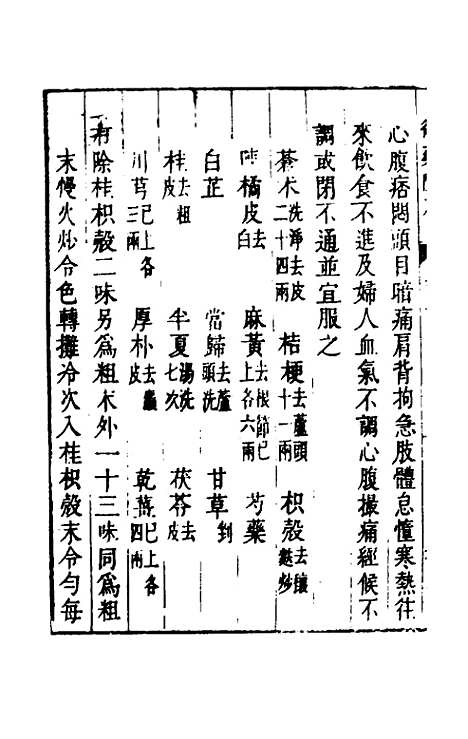 心腹痞悶頭目暗痛肩背拘急肢體怠憧寒熱往
來飲食不進及婦人血氣不調心腹撮痛經候不
調或閉不通並宜服之
蒼朮洗淨去皮二十四兩 桔梗去蘆頭十一兩 枳殼去穰麩炒
陳橘皮去白 麻黃去根節已上各六兩 芍藥
白芷 當歸去蘆頭洗 甘草剉
桂去粗皮 半夏湯洗七次 茯苓去皮
川芎已上各三兩 厚朴去麤皮 乾薑已上各四兩
右除桂枳殼二味另為粗末外一十三味同為粗
末慢火炒令色轉攤冷次入桂枳殼末令勻每